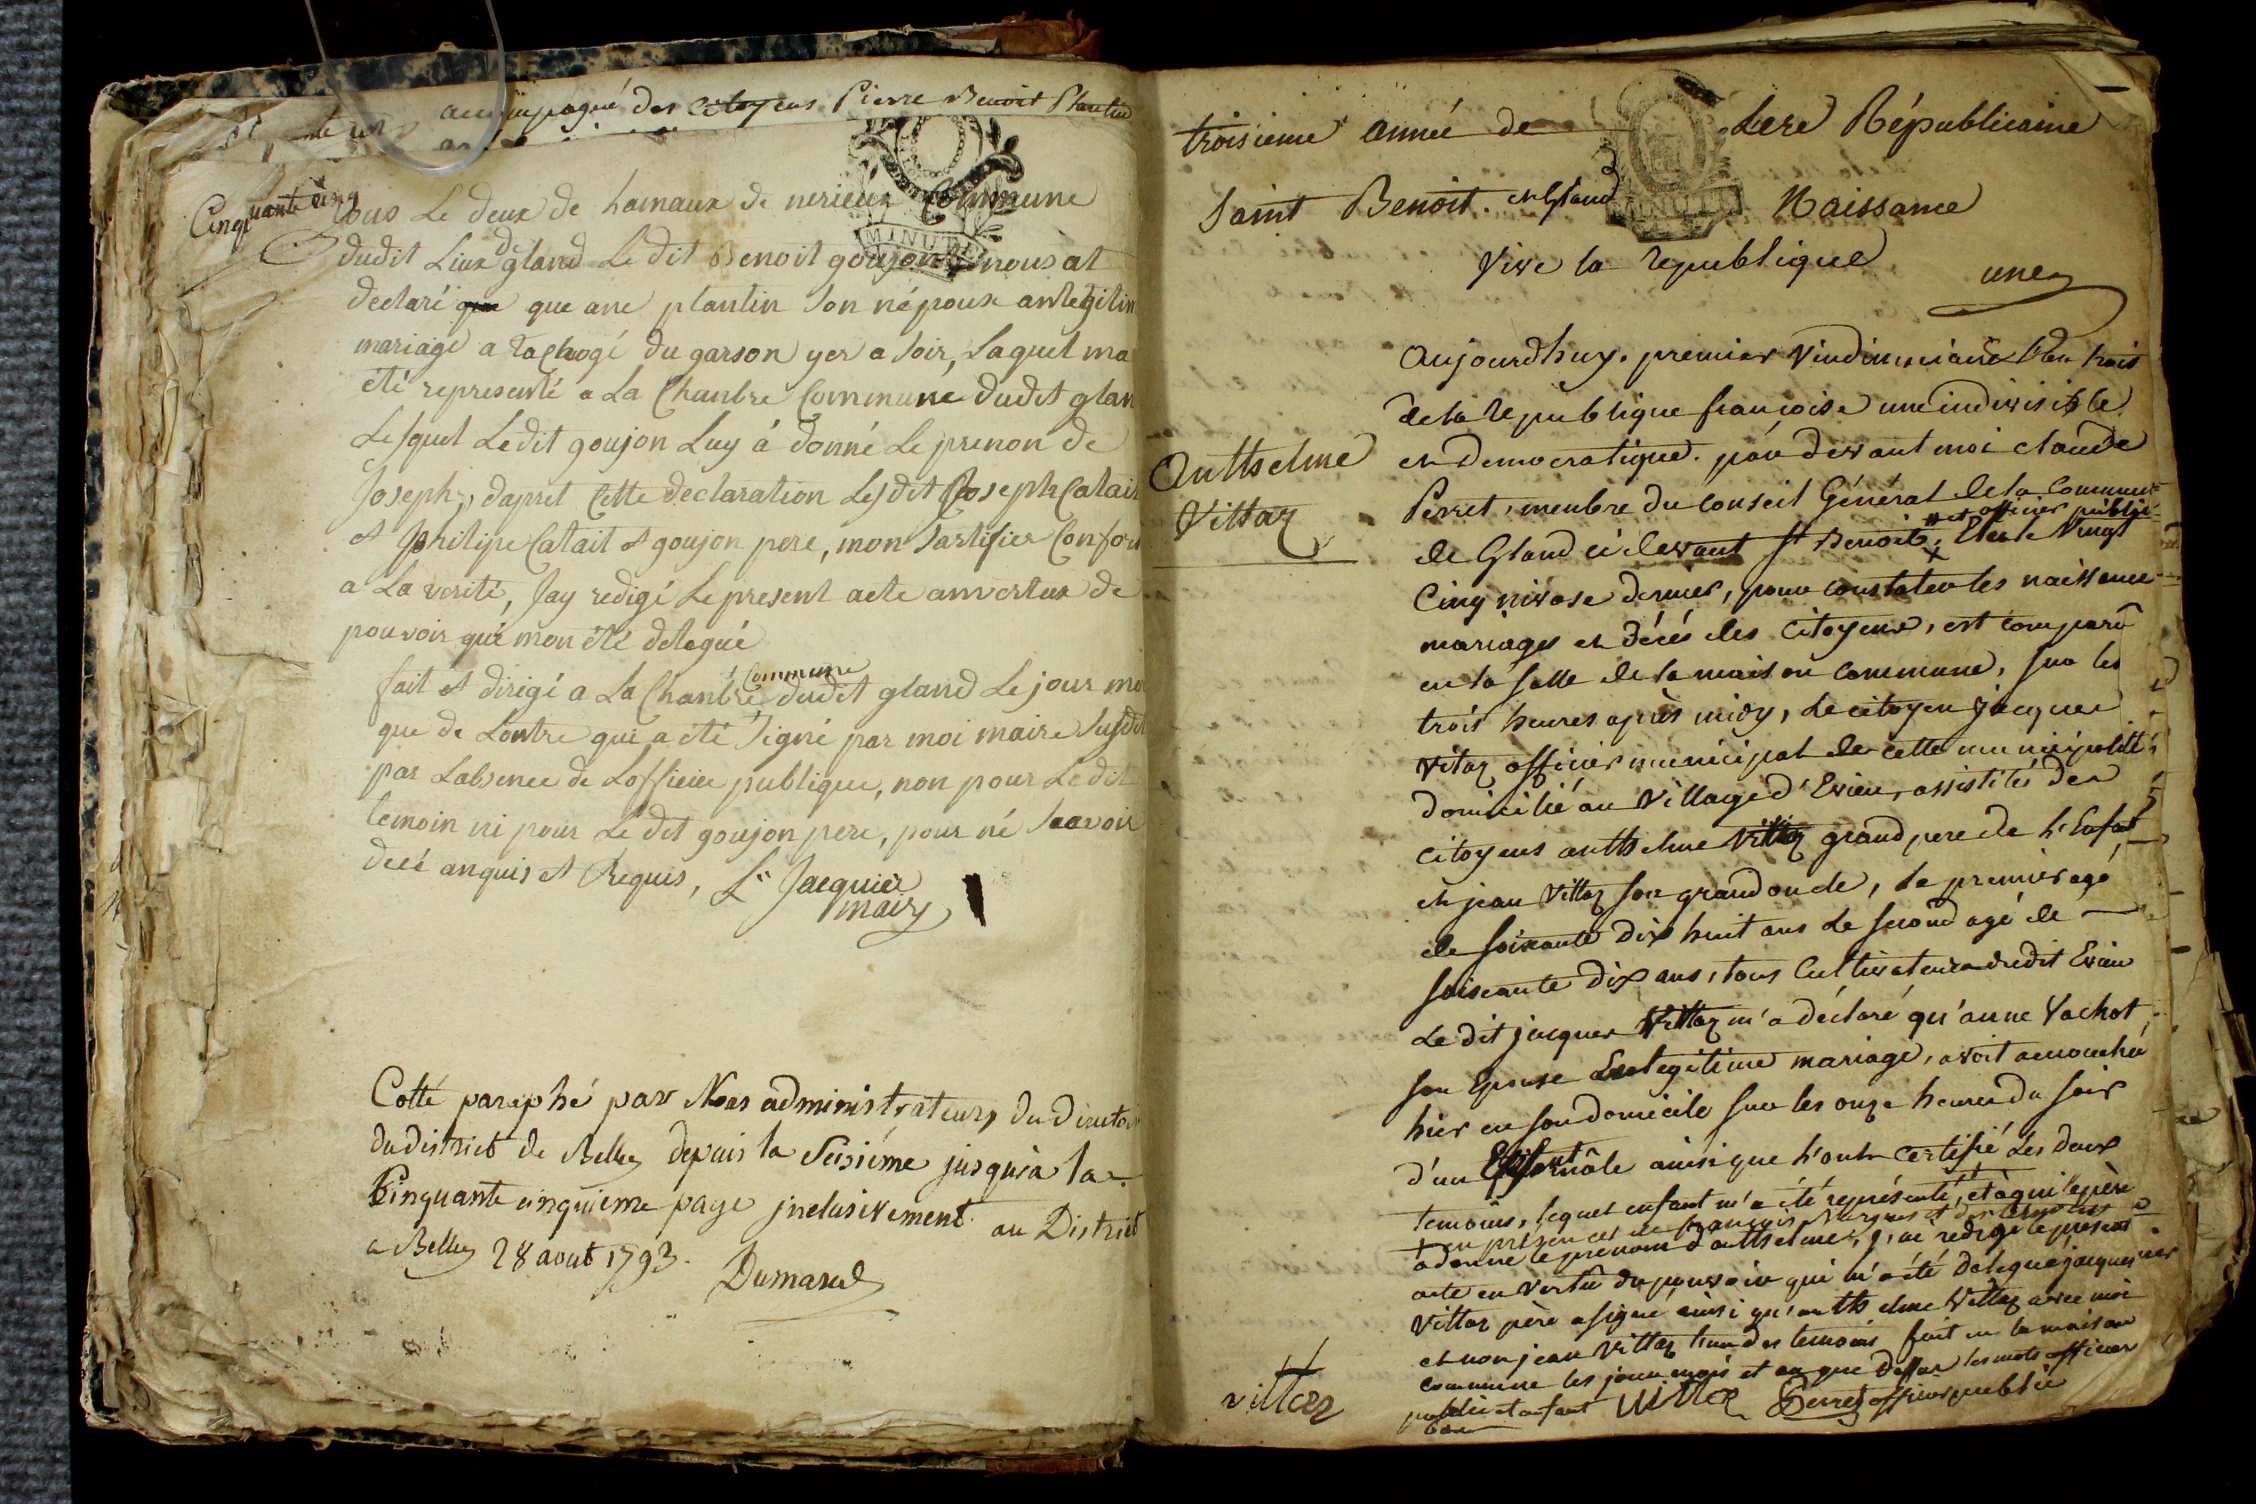 accompagné des citoyens Pierre Benoit Plantin
Cinquante cinq
tous Le deux de hamaux de nerieux Commune
dudit Lieux de gland Le dit Benoit goujon nous at
declaré que que ane plantin son népouse anlegitim
mariage a du garson yer a soir, Laquel ma
été representé a La Chanbre Commune dudit glan
Lesquel Ledit goujon Luy á donné Le prenon de
Joseph, dapret Cette declaration Lesdit Joseph Catait
et philipe Catait et goujon pere, mon sartifier Confor
a La verité, Jay redigé Le present acte anvertus de
pouvoir qui mon été delegué
fait et dirigé a La Chanbre Commune dudit gland Le jour moi
que de Lontre qui a été signé par moi maire susdit
par Labsence de Lofficier publique, non pour Le dit
temoin ni pour Le dit goujon pere, pour né savoir
decé anquis et Requis, Jacquier
maire
Cotté paraphé par Nous administrateurs du director
du district de Belley depuis la Seisiéme jusqu'à la
Cinquante cinquieme page inclusivement au District
a Belley 28 aout 1793.
Dumarest
troisieme année de Lere Républicaine
Saint Benoit. et Gland Naissance
MINUTE
Vive la republique
une
Aujourdhuy. premier Vindimiaire l'an trois
de la republique françoise une indivisible
et democratique. par devant moi claude
Anthelme
Vittoz
Perret, membre du conseil Général de la Commune
et officier public
de Gland ci devant St Benoit, Elu le Vingt
Cinq nivose dernier, pour constater les naissances
mariages et décés des Citoyens, est comparû
en la salle de la maison commune, sur les
trois heures après midy, le citoyen jacques
Vitoz officier municipal de cette municipalité
domicilié au Village d'Evieu, assistés des
citoyens anthelme Vittoz grand pere de l'Enfant
et jean Vittoz son grand oncle, le premier agé
de soixante dix huit ans le second agé de
soixante dix ans, tous Cultivateurs dudit Evieu
Le dit jacques Vittoz m'a déclaré qu'anne Vachot
son Epouse En legitime mariage, avoit accouchée
hier en son domicile sur les onze heures du soir
d'un Enfant mâle ainsi que l'ont certifié les deux
temoins, lequel enfant m'a été représenté, et à qui le père
en présences de françois et des temoins
a donné le prenom d'anthelme, j'ai redigé le present
acte en vertu du pouvoir qui m'a été délégué jacques
Vittoz père a signé ainsi qu'anthelme Vittoz avec moi
et non jean Vittoz l'un des temoins fait en la maison
commune les jour mois et an que dessus les mots officier
public et enfant
vittoz Vittoz Perret officier public